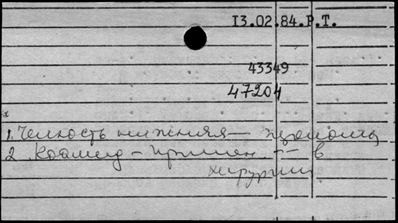 13.02.84.Р.Т.
43349
47204
1. Челюсть нижняя — переломы
2. Коапмед — примен. — в
хирургии